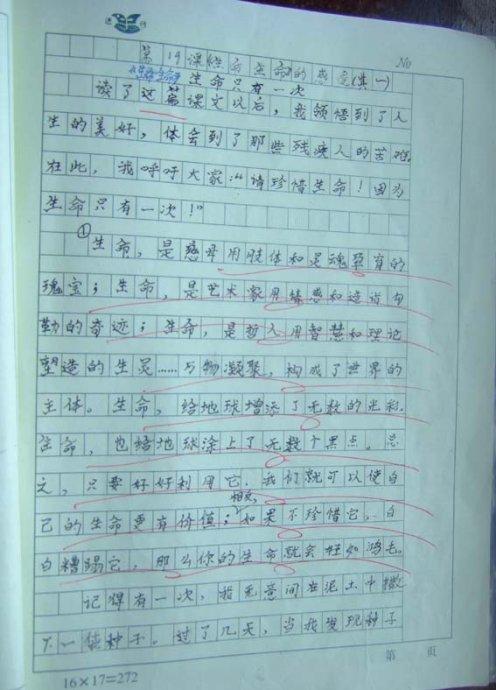 No
第19课结合生命的感受(其一)
生命只有一次
读了这篇课文以后，我领悟到了人
生的美好，体会到了那些残疾人的苦难。
在此，我呼吁大家：“请珍惜生命！因为
生命只有一次！”
①生命，是慈母用肢体和灵魂孕育的
瑰宝；生命，是艺术家用情感和造诣勾
勒的奇迹；生命，是哲人用智慧和理论
塑造的生灵……与物凝聚，构成了世界的
主体。生命，给地球增添了无数的光彩。
生命，也给地球涂上了无数个黑点。总
之，只要好好利用它，我们就可以使自
己的生命更有价值；相反，如果不珍惜它，白
白糟蹋它，那么你的生命就会轻如鸿毛。
记得有一次，我无意间在泥土中撒
下一颗种子。过了几天，当我发现种子
第 页
16×17=272